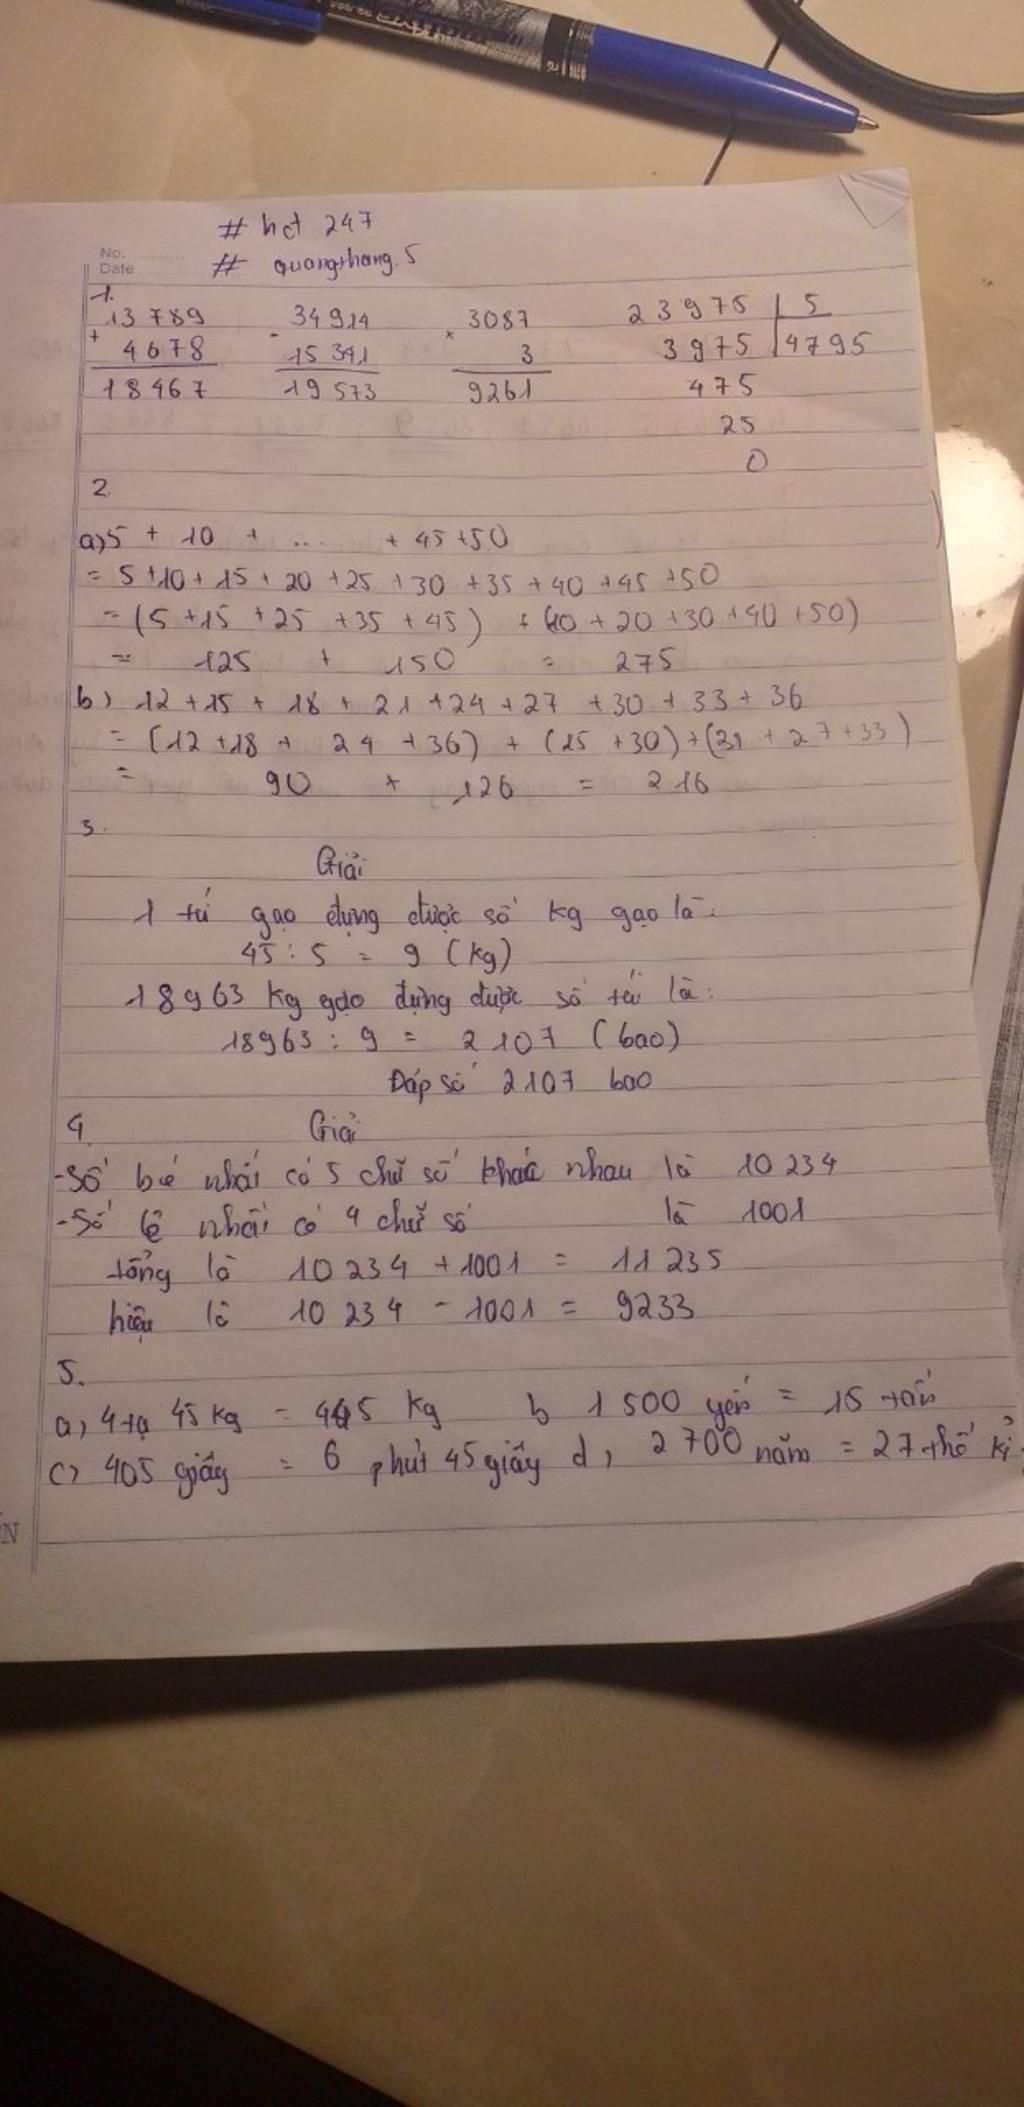 # hct 247
No.
Date
# quangthang.5
1.
13 789 34 914 3087 23975 | 5
+ 4678 - 15 341 × 3 3975 | 4795
18 467 19 573 9261 475
25
0
2.
a) 5 + 10 + ... + 45 + 50
= 5 + 10 + 15 + 20 + 25 + 30 + 35 + 40 + 45 + 50
= (5 + 15 + 25 + 35 + 45) + (10 + 20 + 30 + 40 + 50)
= 125 + 150 = 275
b) 12 + 15 + 18 + 21 + 24 + 27 + 30 + 33 + 36
= (12 + 18 + 24 + 36) + (15 + 30) + (21 + 27 + 33)
= 90 + 126 = 216
3.
Giải
1 túi gạo đựng được số kg gạo là:
45 : 5 = 9 (kg)
18963 kg gạo đựng được số túi là:
18963 : 9 = 2107 (bao)
Đáp số 2107 bao
4. Giải
- Số bé nhất có 5 chữ số khác nhau là 10 234
- Số lẻ nhất có 4 chữ số là 1001
tổng là 10 234 + 1001 = 11 235
hiệu là 10 234 - 1001 = 9233
5.
a, 4 tạ 45 kg = 445 kg b 1 500 yến = 15 tấn
c) 405 giây = 6 phút 45 giây d, 2 700 năm = 27 thế kỉ